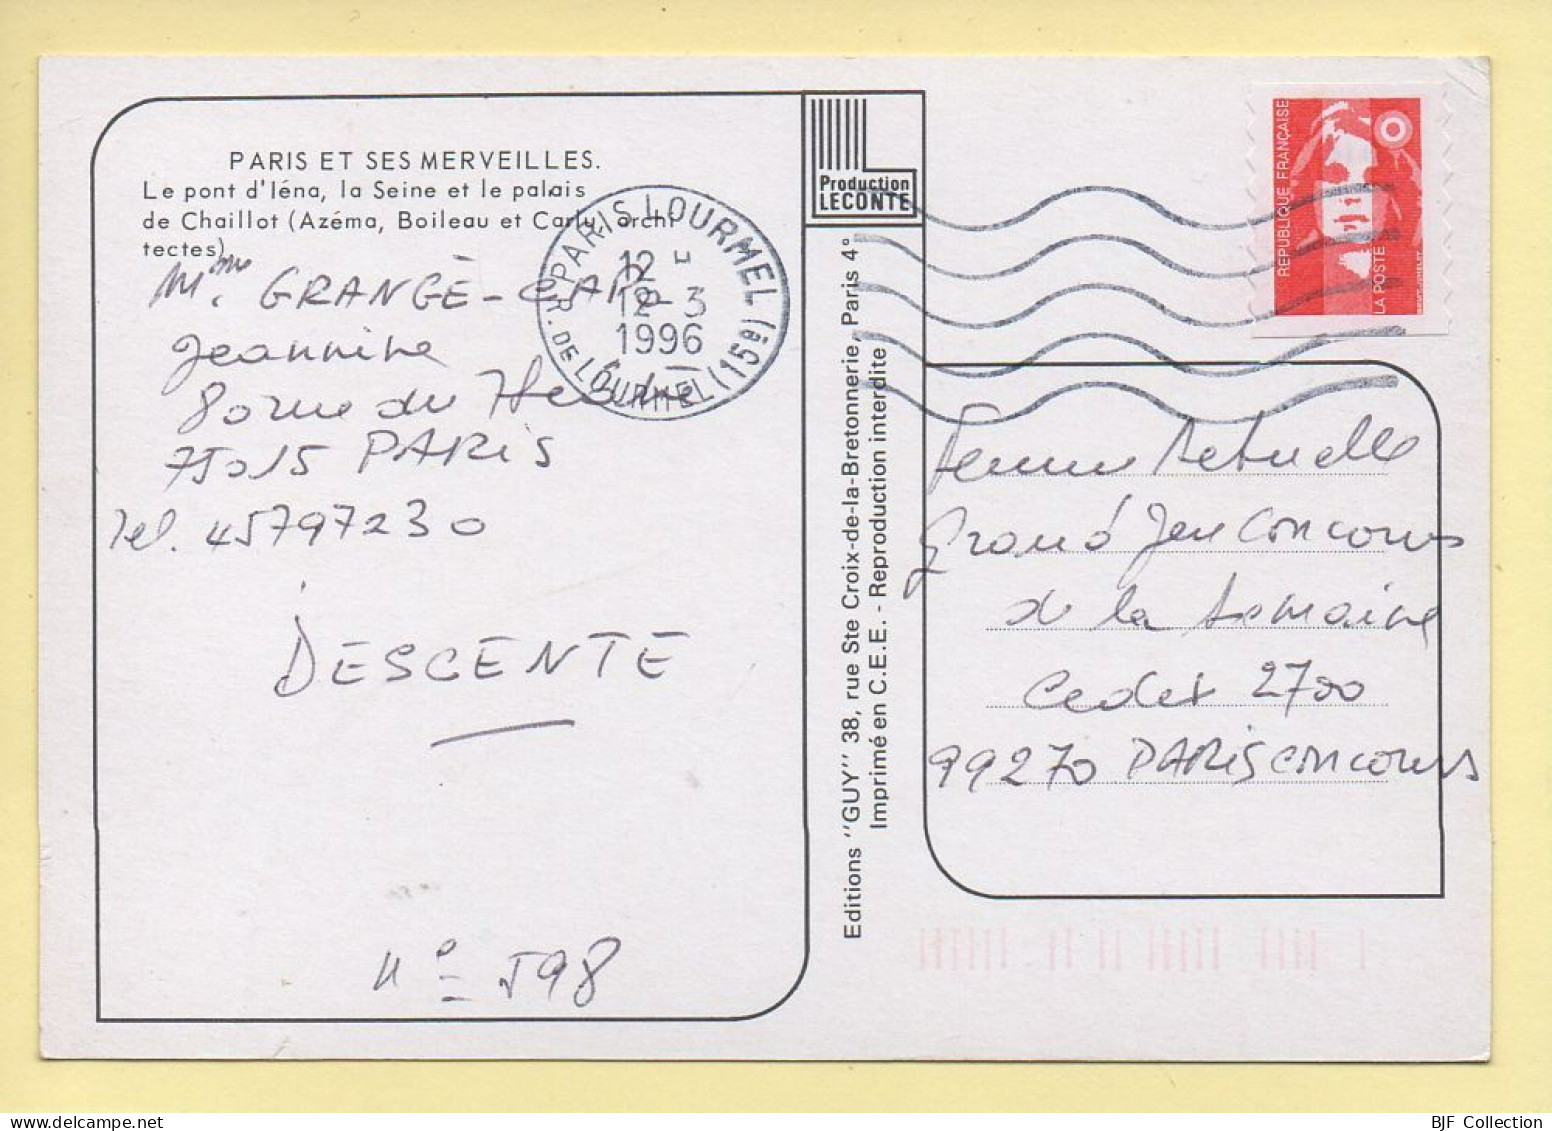 PARIS ET SES MERVEILLES.
Le pont d'Iéna, la Seine et le palais
de Chaillot (Azéma, Boileau et Carlu, archi
tectes)
Mme. GRANGÉ-CAPO
Jeannine
80 rue du
75015 PARIS
Tel. 45797230
DESCENTE
N° 598
PARIS LOURMEL (15è)
R. DE LOURMEL
12 H
12-3
1996
Production
LECONTE
Editions "GUY" 38, rue Ste Croix-de-la-Bretonnerie, Paris 4°
Imprimé en C.E.E. - Reproduction interdite
REPUBLIQUE FRANÇAISE
LA POSTE
Femme Actuelle
Grand Jeu Concours
de la semaine
Cedex 2700
99270 PARIS CONCOURS
BJF Collection